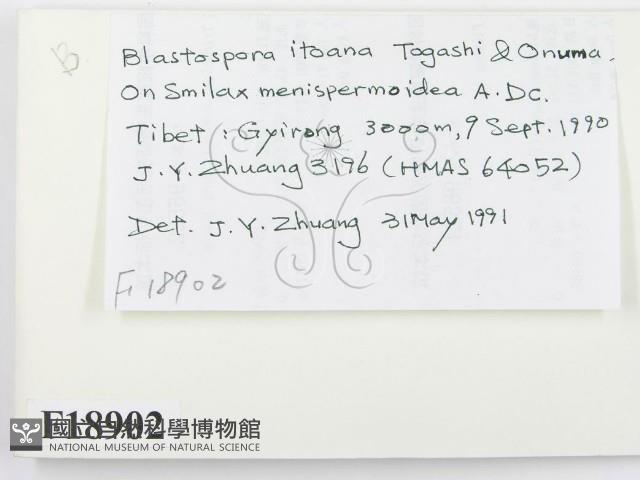 B
Blastospora itoana Togashi & Onuma.
On Smilax menispermoidea A. Dc.
Tibet : Gyirong 3000m, 9 Sept. 1990
J. Y. Zhuang 3196 (HMAS 64052)
Det. J. Y. Zhuang 31 May 1991
F18902
F18902
國立自然科學博物館
NATIONAL MUSEUM OF NATURAL SCIENCE